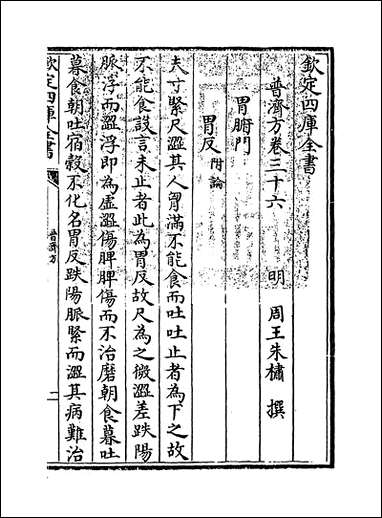 欽定四庫全書
普濟方卷三十六
明 周王朱橚 撰
胃腑門
胃反 附論
夫寸緊尺澀其人胷滿不能食而吐吐止者為下之故
不能食設言未止者此為胃反故尺為之微澀差趺陽
脈浮而澀浮即為虛澀傷脾脾傷而不治磨朝食暮吐
暮食朝吐宿榖不化名胃反趺陽脈緊而澀其病難治
欽定四庫全書
普濟方